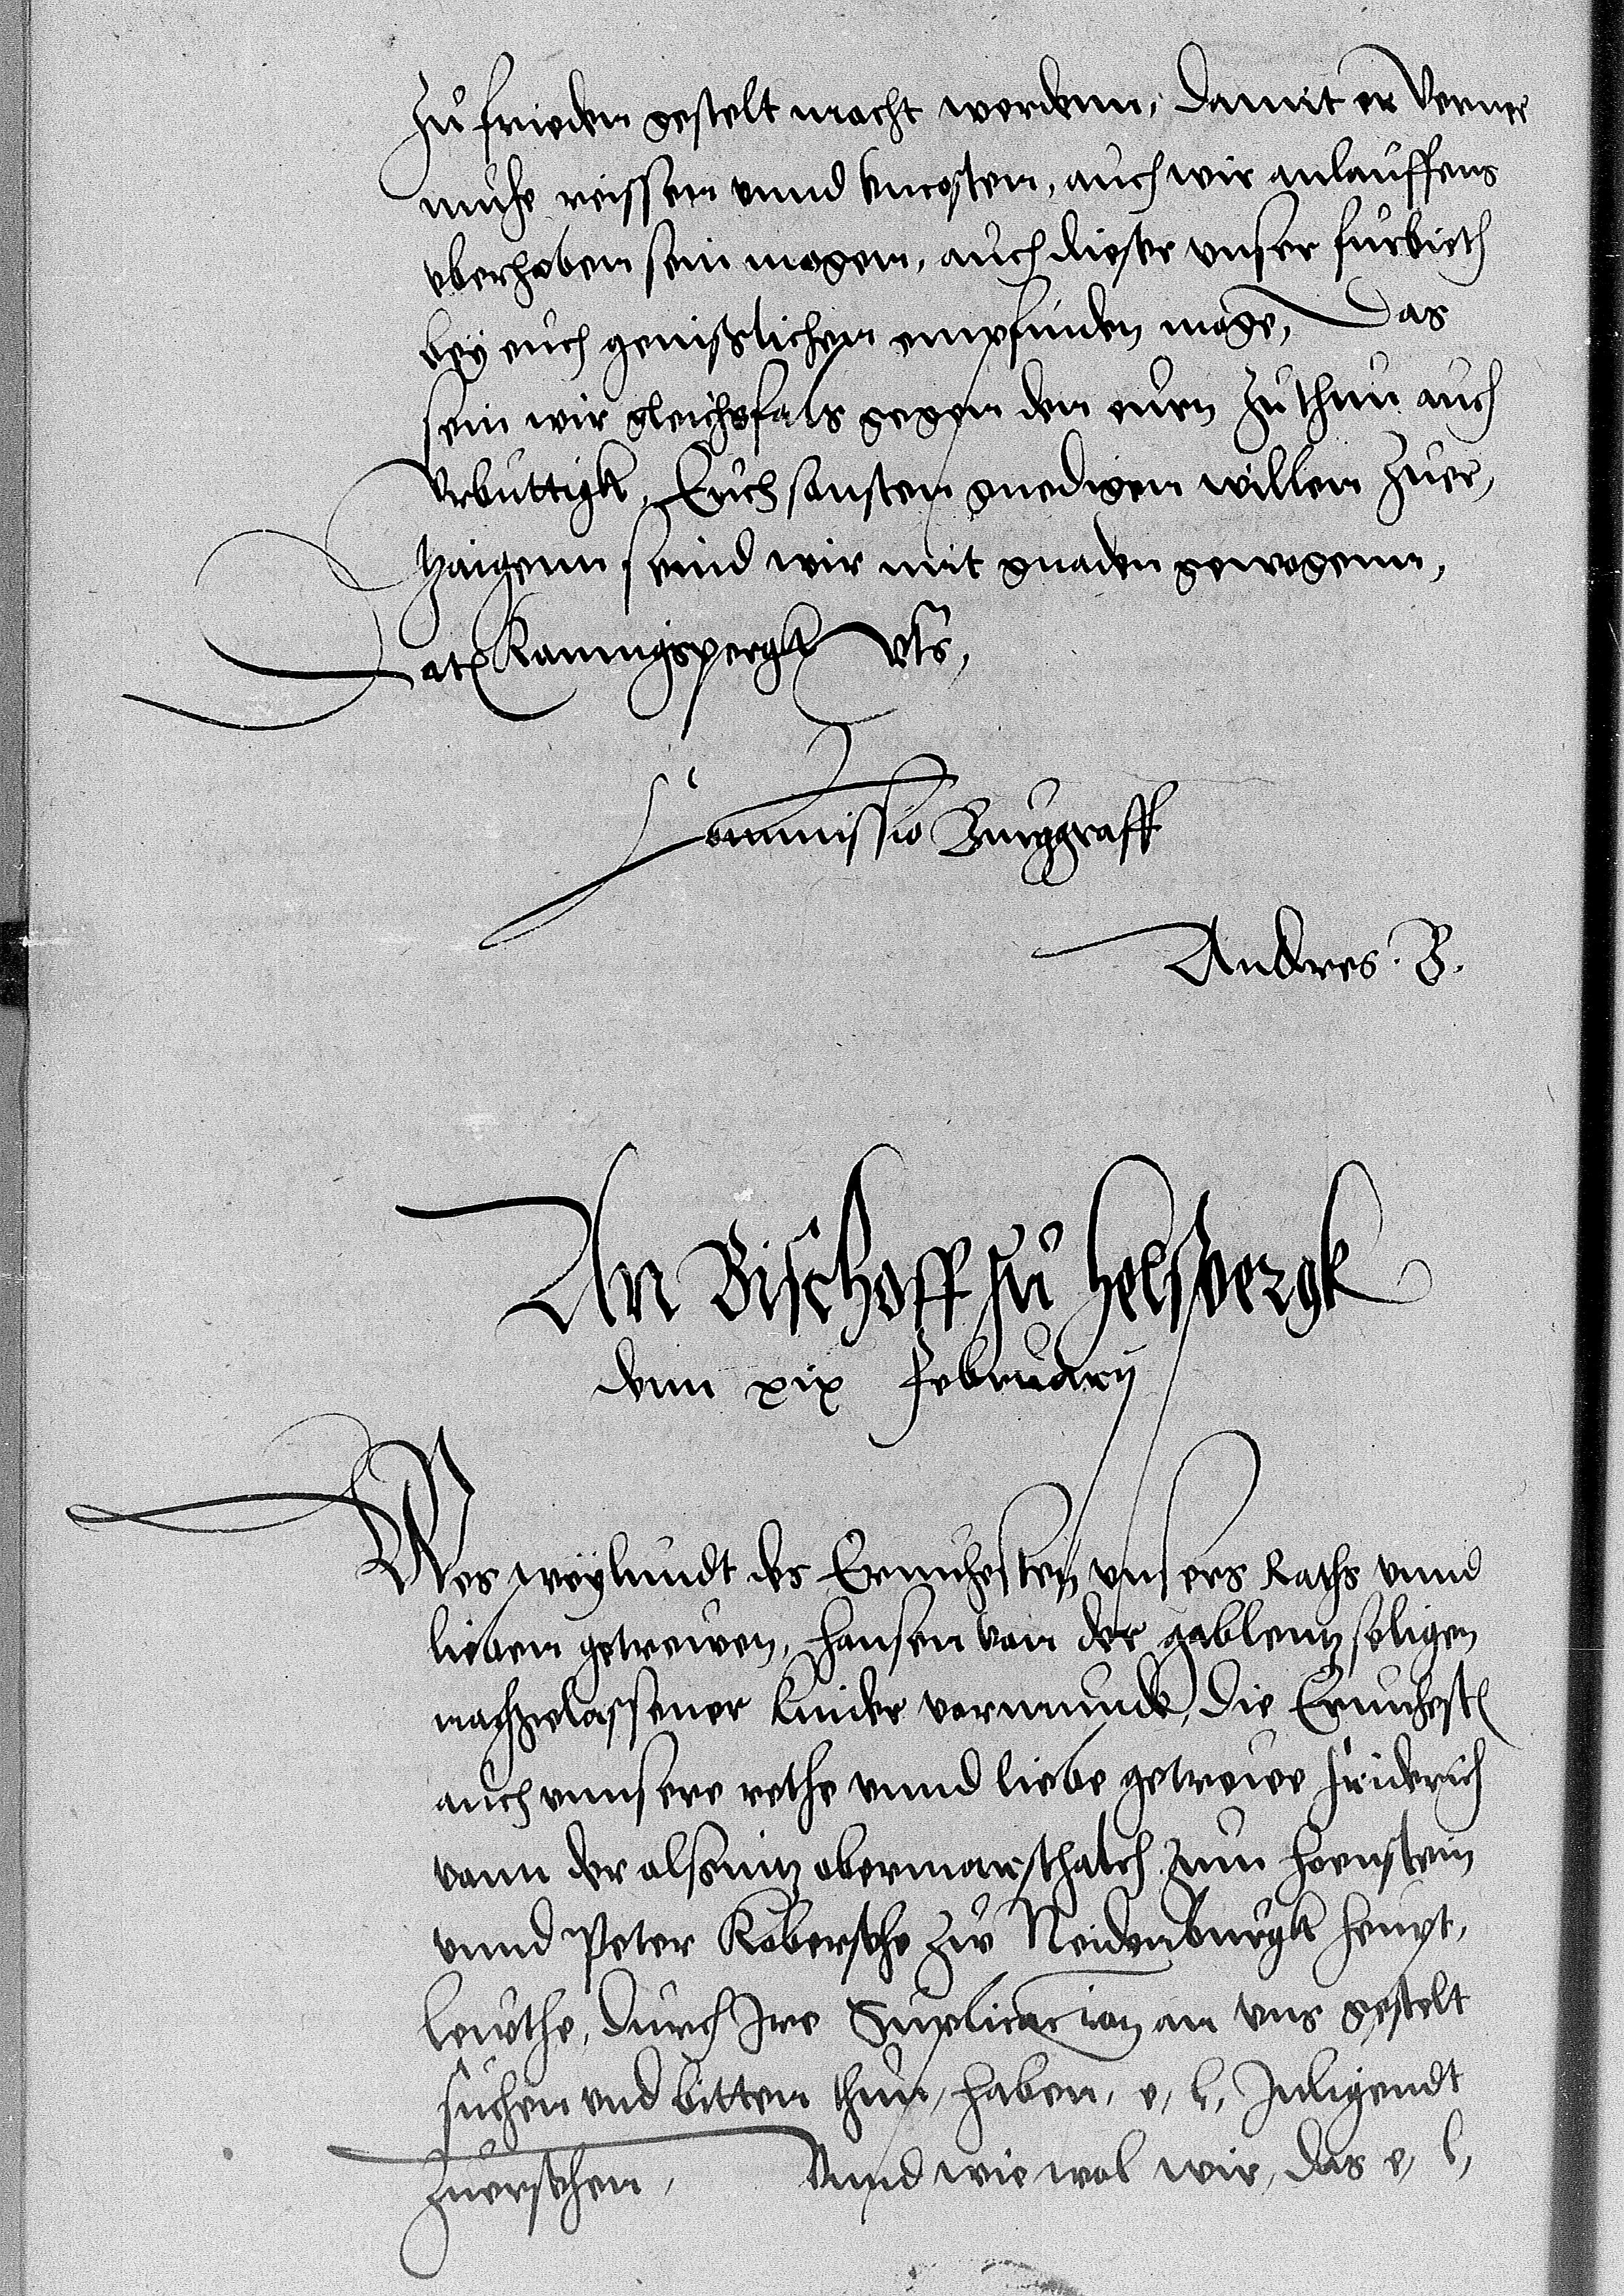 zu frieden gestelt macht werdenn, damit er verner
muhe reissen vnnd vncosten, auch wir anlauffens
vberhoben sein mogen, auch dieser vnser furbieth
bey euch genißlichen empfinden moge, Das
sein wir gleichsfals gegen den eurn zuthun auch
vrbuttigk, Euch sonsten gnedigen willen zuer,
tzaigenn seind wir mit gnaden gewogenn,
Dat Konnigspergk vts,
Commissio Burggraff
Andres. B.
An Bischoff zu Helsbergk
denn xix February
Wes weylundt des Ernuhesten vnsers Raths vnnd
lieben getrewen, Hansen von der gablentz seligen
nachgelassener kinder vormunde, die Ernuhest
auch vnnsere rethe vnnd liebe getrewe Friderich
vonn der olßnitz obermarschalch zum Hoenstein
vnnd Peter Kobersehe zw Neidenburgk heupt,
lewthe, durch Ire Suplicacion an vns gestelt
suchen vnd bitten thun, haben, e, l, Inligendt
zuersehen, Vnnd wie wol wir, das e, l,